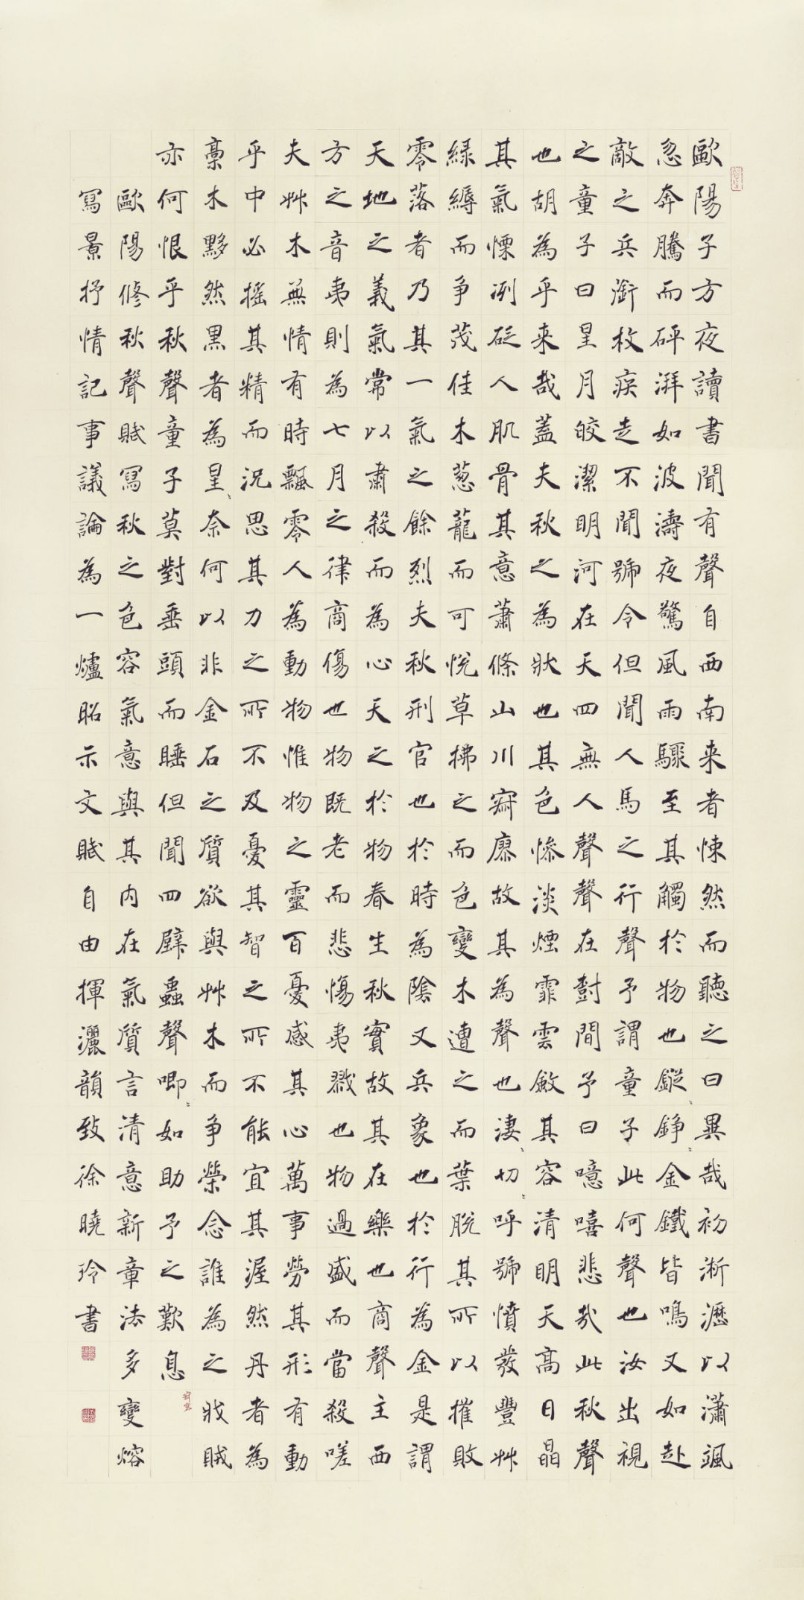 歐陽子方夜讀書聞有聲自西南来者悚然而聽之曰異哉初淅瀝以瀟颯
忽奔騰而砰湃如波濤夜驚風雨驟至其觸於物也鏦〻錚〻金鐵皆鳴又如赴
敵之兵銜枚疾走不聞號令但聞人馬之行聲予謂童子此何聲也汝出視
之童子曰星月皎潔明河在天四無人聲聲在樹間予曰噫嘻悲哉此秋聲
也胡為乎来哉蓋夫秋之為狀也其色慘淡煙霏雲斂其容清明天高日晶
其氣慄冽砭人肌骨其意蕭條山川寂廖故其為聲也淒〻切〻呼號憤發豐艸
綠縟而争茂佳木葱蘢而可悅草拂之而色變木遭之而葉脫其所以摧敗
零落者乃其一氣之餘烈夫秋刑官也於時為陰又兵象也於行為金是謂
天地之義氣常以肅殺而為心天之於物春生秋實故其在樂也商聲主西
方之音夷則為七月之律商傷也物既老而悲傷夷戮也物過盛而當殺嗟
夫艸木無情有時飄零人為動物惟物之靈百憂感其心萬事勞其形有動
乎中必搖其精而況思其力之所不及憂其智之所不能宜其渥然丹者為
槀木黟然黑者為星〻奈何以非金石之質欲與艸木而争榮念誰為之戕賊
亦何恨乎秋聲童子莫對垂頭而睡但聞四壁蟲聲唧〻如助予之歎息
歐陽修秋聲賦寫秋之色容氣意與其内在氣質言清意新章法多變熔
寫景抒情記事議論為一爐昭示文賦自由揮灑韻致徐曉玲書